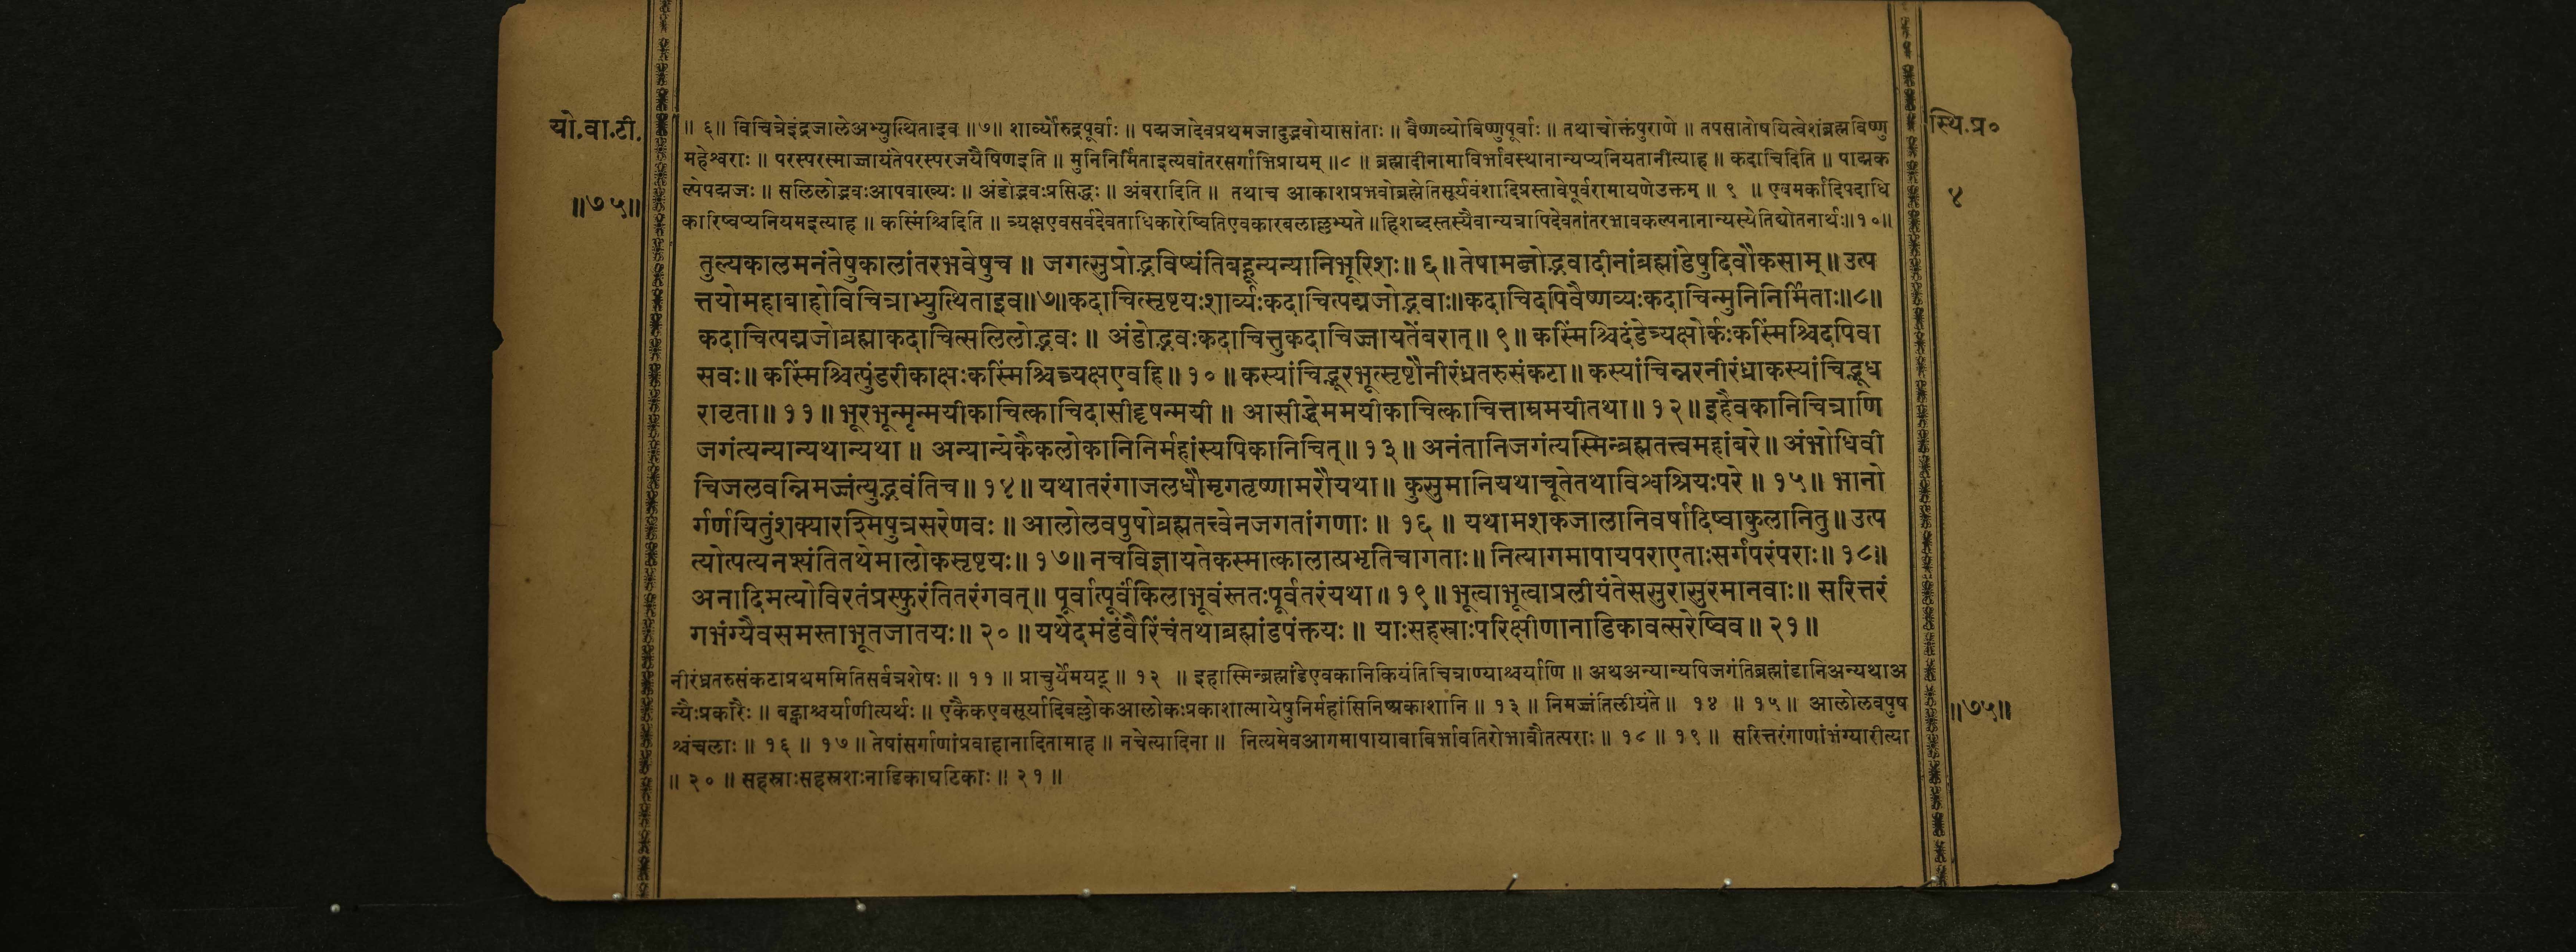 यो.वा.टी.
॥७५॥
स्थि.प्र०
४
॥ ६॥ विचित्रेइंद्रजालेअभ्युत्थिताइव ॥७॥ शार्व्योरुद्रपूर्वाः ॥ पद्मजादेवप्रथमजादुद्भवोयासांताः ॥ वैष्णव्योविष्णुपूर्वाः ॥ तथाचोक्तंपुराणे ॥ तपसातोषयित्वेशंब्रह्मविष्णु
महेश्वराः ॥ परस्परस्माज्जायंतेपरस्परजयैषिणइति ॥ मुनिनिर्मिताइत्यवांतरसर्गाभिप्रायम् ॥८ ॥ ब्रह्मादीनामाविर्भावस्थानान्यप्यनियतानीत्याह ॥ कदाचिदिति ॥ पाद्मक
ल्पेपद्मजः ॥ सलिलोद्भवःआपवाख्यः ॥ अंडोद्भवःप्रसिद्धः ॥ अंबरादिति ॥ तथाच आकाशप्रभवोब्रह्मेतिसूर्यवंशादिप्रस्तावेपूर्वरामायणेउक्तम् ॥ ९ ॥ एवमर्कादिपदाधि
कारिष्वप्यनियमइत्याह ॥ कस्मिंश्चिदिति ॥ त्र्यक्षएवसर्वदेवताधिकारेष्वितिएवकारबलाल्लभ्यते ॥हिशब्दस्तस्यैवान्यत्रापिदेवतांतरभावकल्पनानान्यस्येतिद्योतनार्थः॥१०॥
तुल्यकालमनंतेषुकालांतरभवेषुच ॥ जगत्सुप्रोद्भविष्यंतिबहून्यन्यानिभूरिशः॥ ६॥ तेषामब्जोद्भवादीनांब्रह्मांडेषुदिवौकसाम् ॥ उत्प
त्तयोमहाबाहोविचित्राभ्युत्थिताइव॥७॥कदाचित्सृष्टयःशार्व्यःकदाचित्पद्मजोद्भवाः॥कदाचिदपिवैष्णव्यःकदाचिन्मुनिनिर्मिताः॥८॥
कदाचित्पद्मजोब्रह्माकदाचित्सलिलोद्भवः ॥ अंडोद्भवःकदाचित्तुकदाचिज्जायतेंबरात् ॥ ९॥ कस्मिंश्चिदंडेत्र्यक्षोर्कःकस्मिंश्चिदपिवा
सवः॥ कस्मिंश्चित्पुंडरीकाक्षःकस्मिंश्चित्र्यक्षएवहि॥ १० ॥ कस्यांचिद्भूरभूत्सृष्टौनीरंध्रतरुसंकटा॥ कस्यांचिन्नरनीरंध्राकस्यांचिद्भूध
रावृता॥ ११ ॥ भूरभून्मृन्मयीकाचित्काचिदासीदृषन्मयी ॥ आसीद्धेममयीकाचित्काचित्ताम्रमयीतथा॥ १२॥ इहैवकानिचित्राणि
जगंत्यन्यान्यथान्यथा ॥ अन्यान्येकैकलोकानिनिर्महांस्यपिकानिचित्॥ १३॥ अनंतानिजगंत्यस्मिन्ब्रह्मतत्त्वमहांबरे॥ अंभोधिवी
चिजलवन्निमज्जंत्युद्भवंतिच॥ १४॥ यथातरंगाजलधौमृगतृष्णामरौयथा॥ कुसुमानियथाचूतेतथाविश्वश्रियःपरे ॥ १५॥ भानो
र्गर्णयितुंशक्यारश्मिषुत्रसरेणवः ॥ आलोलवपुषोब्रह्मतत्त्वेनजगतांगणाः ॥ १६ ॥ यथामशकजालानिवर्षादिष्वाकुलानितु॥ उत्प
त्योत्पत्यनश्यंतितथेमालोकसृष्टयः॥ १७॥ नचविज्ञायतेकस्मात्कालात्प्रभृतिचागताः॥ नित्यागमापायपराएताःसर्गपरंपराः॥ १८॥
अनादिमत्योविरतंप्रस्फुरंतितरंगवत्॥ पूर्वात्पूर्वंकिलाभूवंस्ततःपूर्वतरंयथा॥ १९॥ भूत्वाभूत्वाप्रलीयंतेससुरासुरमानवाः॥ सरित्तरं
गभंग्यैवसमस्ताभूतजातयः॥ २० ॥ यथेदमंडंवैरिंचंतथाब्रह्मांडपंक्तयः ॥ याःसहस्राःपरिक्षीणानाडिकावत्सरेष्विव॥ २१॥
नीरंध्रतरुसंकटाप्रथममितिसर्वत्रशेषः ॥ ११ ॥ प्राचुर्येमयट् ॥ १२ ॥ इहास्मिन्ब्रह्मांडेएवकानिकियंतिचित्राण्याश्चर्याणि ॥ अथअन्यान्यपिजगंतिब्रह्मांडानिअन्यथाअ
न्यैःप्रकारैः ॥ बह्वाश्चर्याणीत्यर्थः ॥ एकैकएवसूर्यादिवल्लोकआलोकःप्रकाशात्मायेषुनिर्महांसिनिष्प्रकाशानि ॥ १३ ॥ निमज्जंतिलीयंते ॥ १४ ॥ १५ ॥ आलोलवपुष
श्चंचलाः ॥ १६ ॥ १७ ॥ तेषांसर्गाणांप्रवाहानादितामाह ॥ नचेत्यादिना ॥ नित्यमेवआगमापायावाविर्भावतिरोभावौतत्पराः ॥ १८ ॥ १९ ॥ सरित्तरंगाणांभंग्यारीत्या
॥ २० ॥ सहस्राःसहस्रशःनाडिकाघटिकाः ॥ २१ ॥
॥७५॥